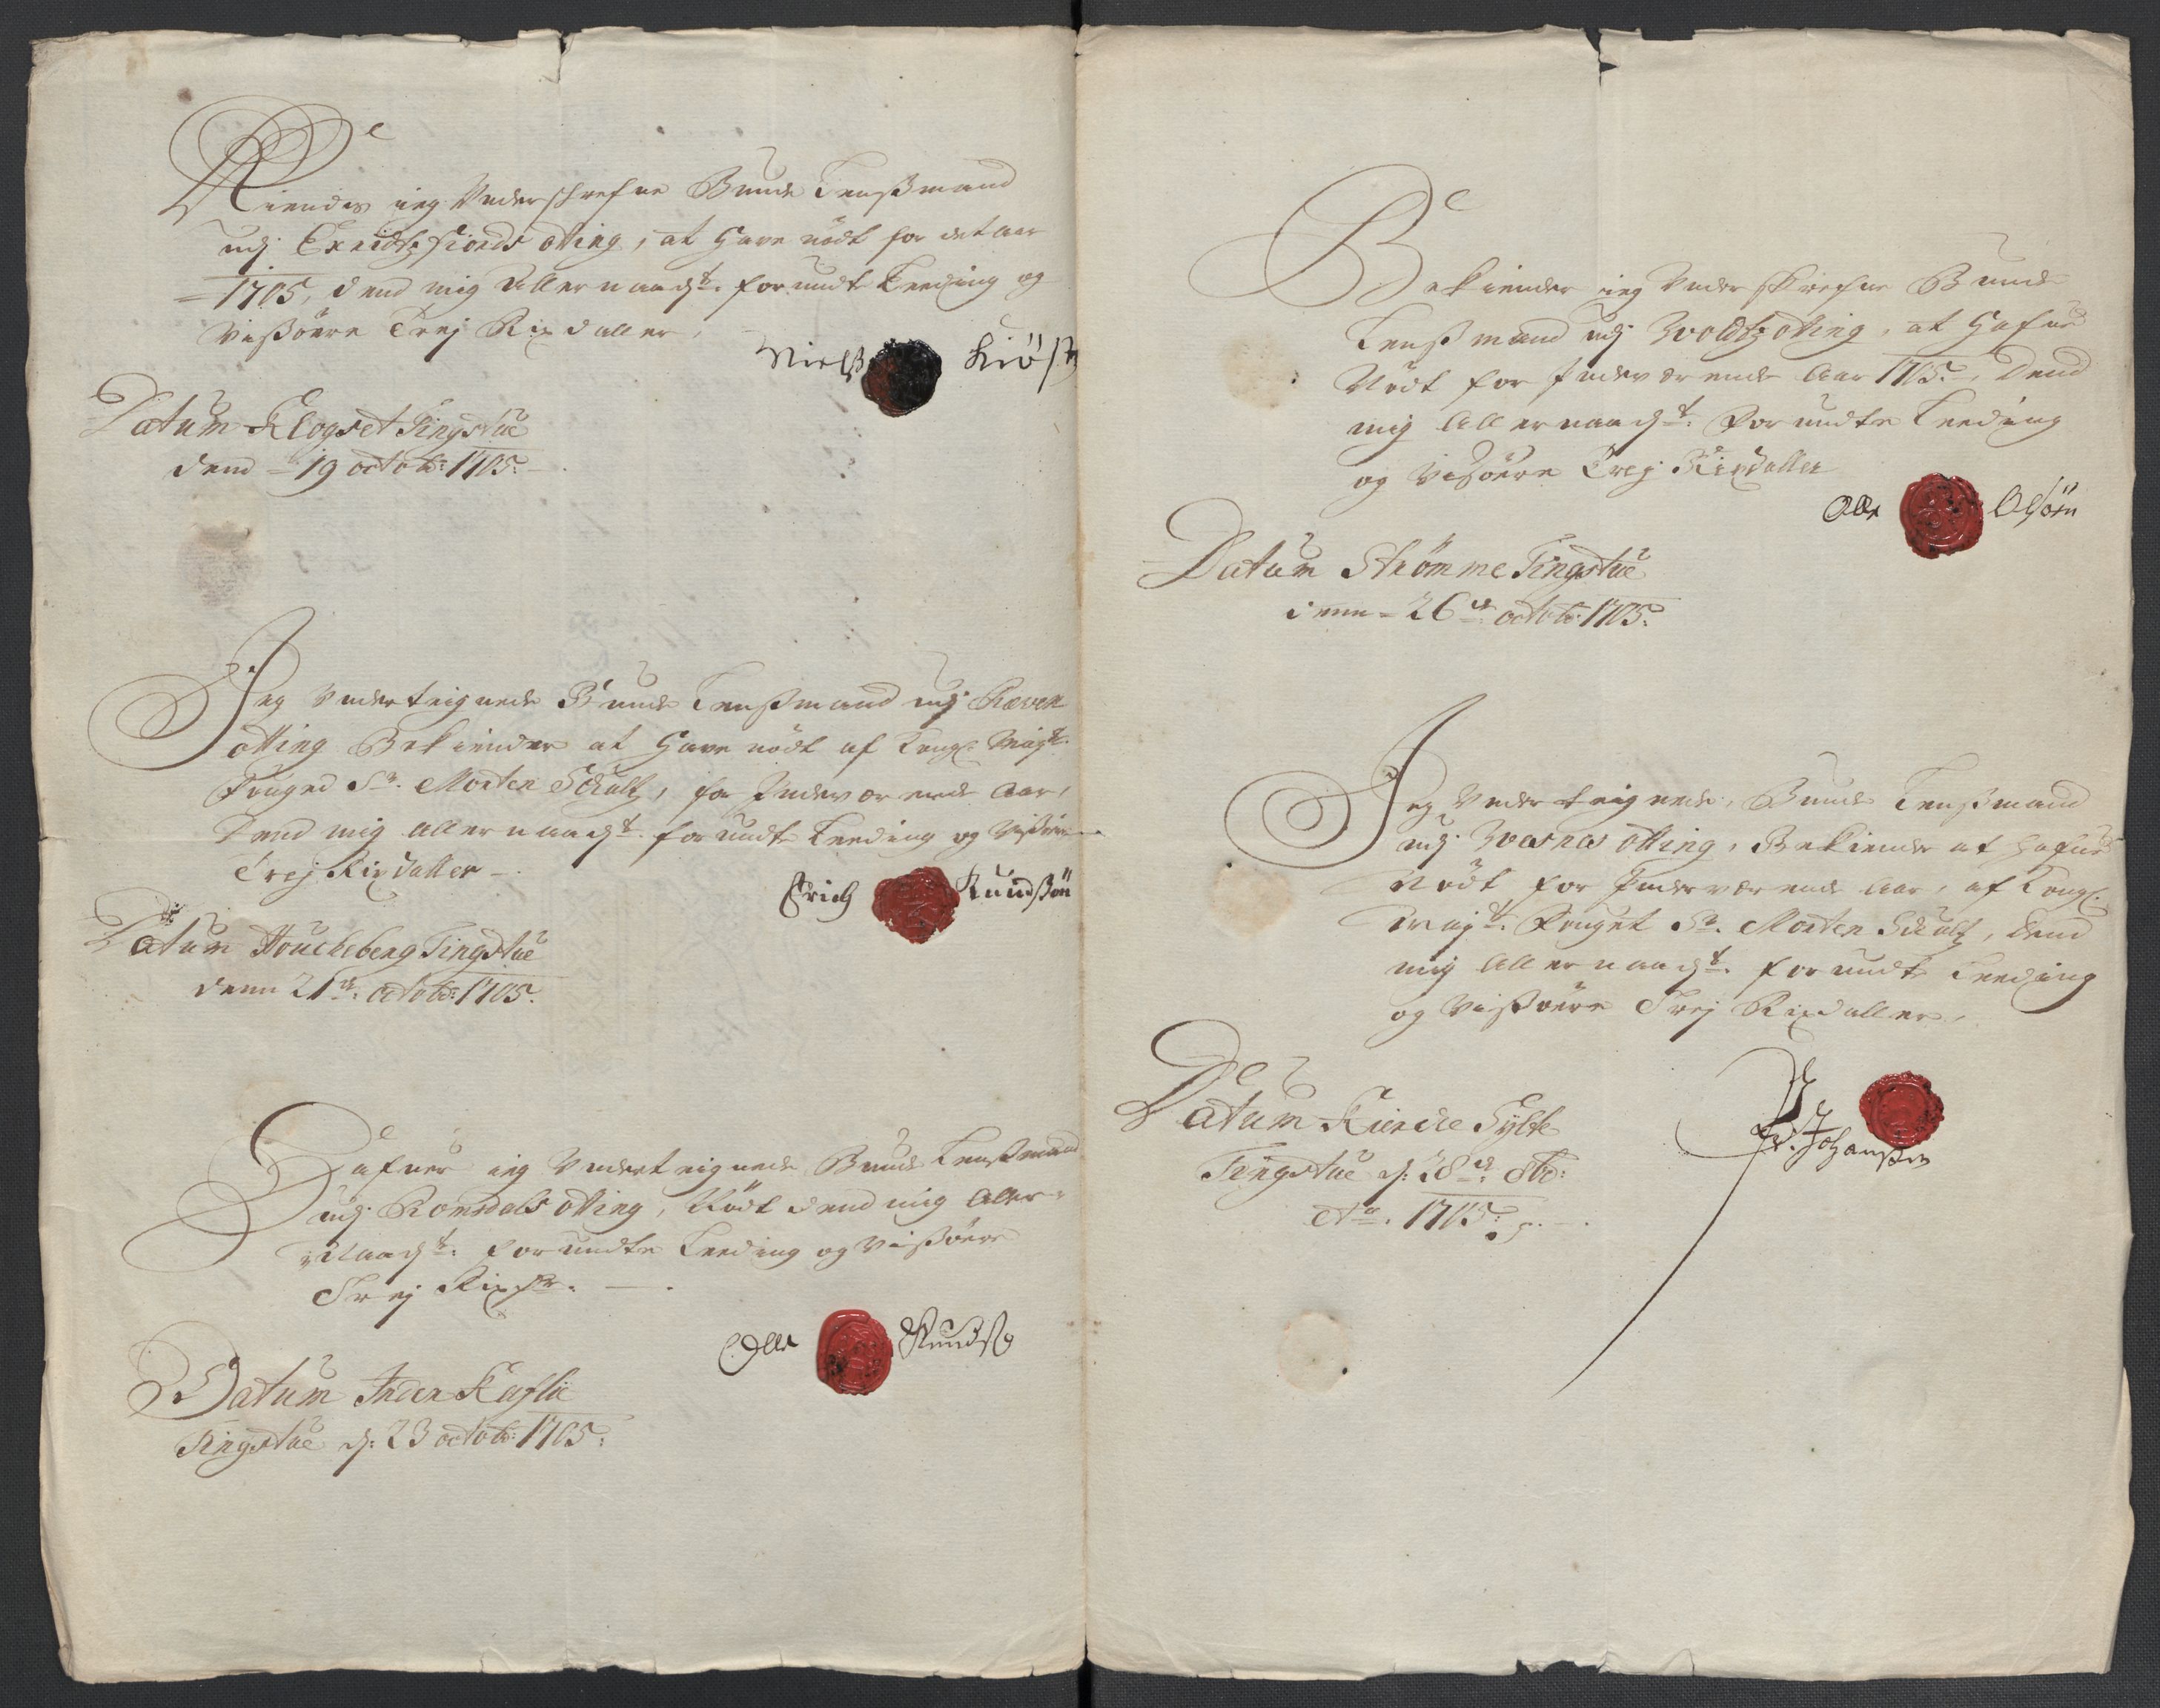 Kiendis ieg Underschrefne Bunde Lenßmand
udj Exeidtzfiords otting, at Have nödt for det aar
1705, dend mig Allernaadst. forundt Leeding og
Visöere Trej Rixdaller,
Nielß Kiöst
Datum Klogset Tingstue
dend 19 octobr: 1705.
Jeg Underteignede Bunde Lenßmand udj Ræven
otting Bekiender at Have nödt af Kongl. Mayts.
Fouged Sr. Morten Schultz, for Indeværende Aar,
Dend mig Allernaadst. forundt Leeding og Visöere
Trej Rixdaller
Erich Knudßön
Datum Houcheberg Tingstue
denn 21de. octobr: 1705.
Hafuer ieg Underteignede Bunde Lenßmand
udj Romsdals otting, Nödt dend mig Aller-
Naadst: forundte Leeding og Visöere
Trej Rixdr.
Olle Knudß
Datum Inden Kaflie
Tingstue d: 23 octobr: 1705.
Bekiender ieg Underskrefne Bunde
Lenßmand udj Woldtz otting, at Hafue
Nödt for Indeværende Aar 1705, Dend
mig Allernaadst: forundte Leeding
og Visöere Trej Rixdaller
Olle Olsön
Datum Strömme Tingstue
denn 26de octobr: 1705.
Jeg Underteignede, Bunde Lenßmand
udj Wasnæs otting, Bekiende at Hafue
Nödt for Indeværende Aar, af Kongl.
Mayts. Fouget Sr. Morten Schultz, dend
mig Allernaadst. forundte Leeding
og Visöere Trej Rixdaller,
Datum Kierche Sylte
Tingstue d: 28de. 8br:
Ao. 1705.
Johanßen